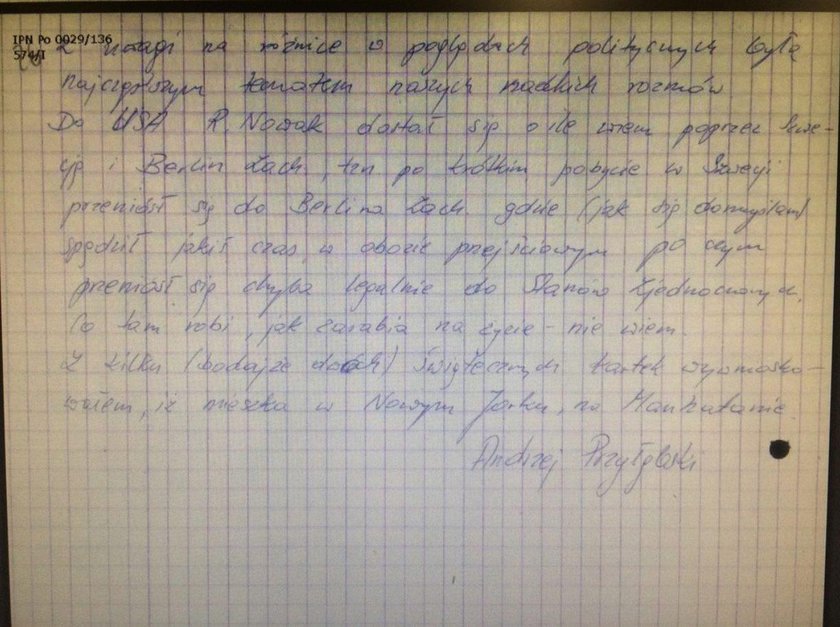 IPN Po 0029/136
574/I
Z uwagi na różnice w poglądach politycznych była
najczęstszym tematem naszych rzadkich rozmów
Do USA R. Nowak dostał się o ile wiem poprzez Szwe-
cję i Berlin Zach., tzn po krótkim pobycie w Szwecji
przeniósł się do Berlina Zach. gdzie (jak się domyślam)
spędził jakiś czas w obozie przejściowym po czym
przeniósł się chyba legalnie do Stanów Zjednoczonych.
Co tam robi, jak zarabia na życie - nie wiem.
Z kilku (bodajże dwóch) świątecznych kartek wywniosko-
wałem, iż mieszka w Nowym Jorku, na Manhatanie.
Andrzej Przyłębski